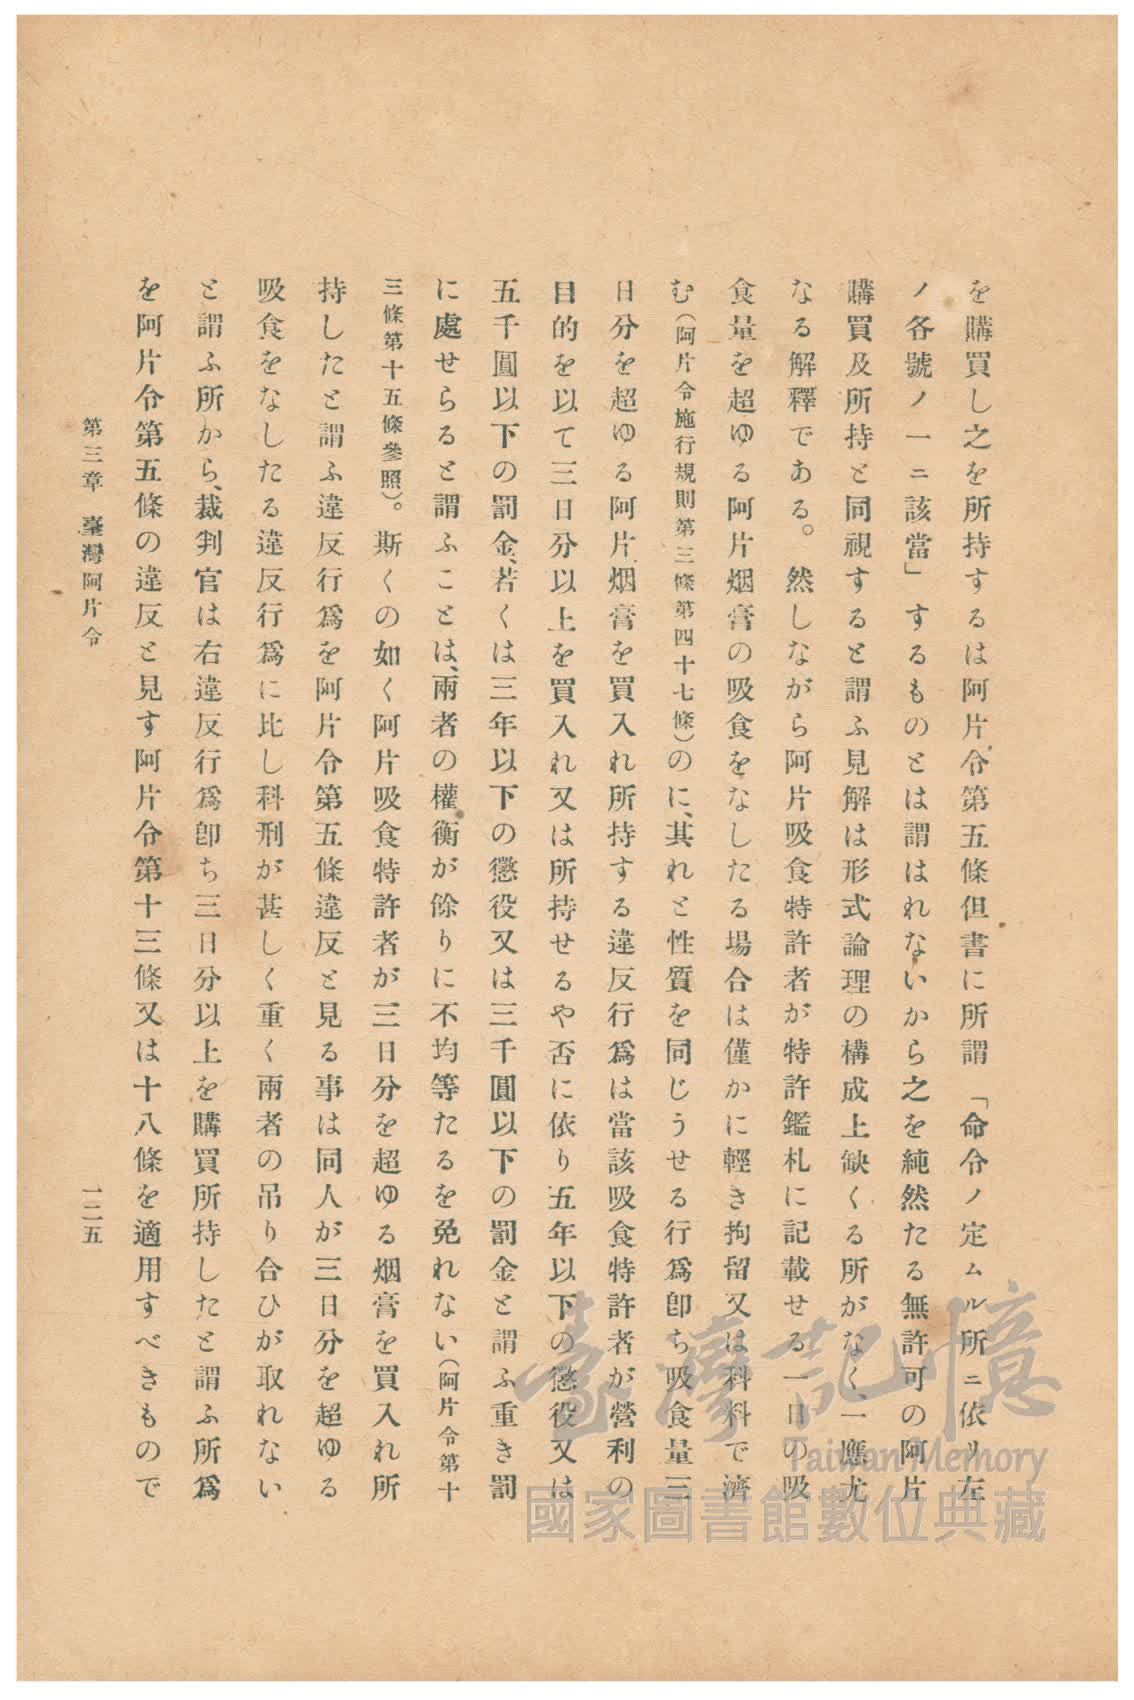 を購買し之を所持するは阿片令第五條但書に所謂「命令ノ定ムル所ニ依リ左
ノ各號ノ一ニ該當」するものとは謂はれないから之を純然たる無許可の阿片
購買及所持と同視すると謂ふ見解は形式論理の構成上缺くる所がなく、一應尤
なる解釋である。然しながら阿片吸食特許者が特許鑑札に記載せる一日の吸
食量を超ゆる阿片烟膏の吸食をなしたる場合は僅かに輕き拘留又は科料で濟
む（阿片令施行規則第三條第四十七條）のに、其れと性質を同じうせる行爲卽ち吸食量三
日分を超ゆる阿片烟膏を買入れ所持する違反行爲は當該吸食特許者が營利の
目的を以て三日分以上を買入れ又は所持せるや否に依り五年以下の懲役又は
五千圓以下の罰金、若くは三年以下の懲役又は三千圓以下の罰金と謂ふ重き罰
に處せらると謂ふことは、兩者の權衡が餘りに不均等たるを免れない（阿片令第十
三條第十五條參照）。斯くの如く阿片吸食特許者が三日分を超ゆる烟膏を買入れ所
持したと謂ふ違反行爲を阿片令第五條違反と見る事は同人が三日分を超ゆる
吸食をなしたる違反行爲に比し科刑が甚しく重く兩者の吊り合ひが取れない
と謂ふ所から、裁判官は右違反行爲卽ち三日分以上を購買所持したと謂ふ所爲
を阿片令第五條の違反と見す阿片令第十三條又は十八條を適用すべきもので
第三章 臺灣阿片令
一二五
臺灣記憶
Taiwan Memory
國家圖書館數位典藏